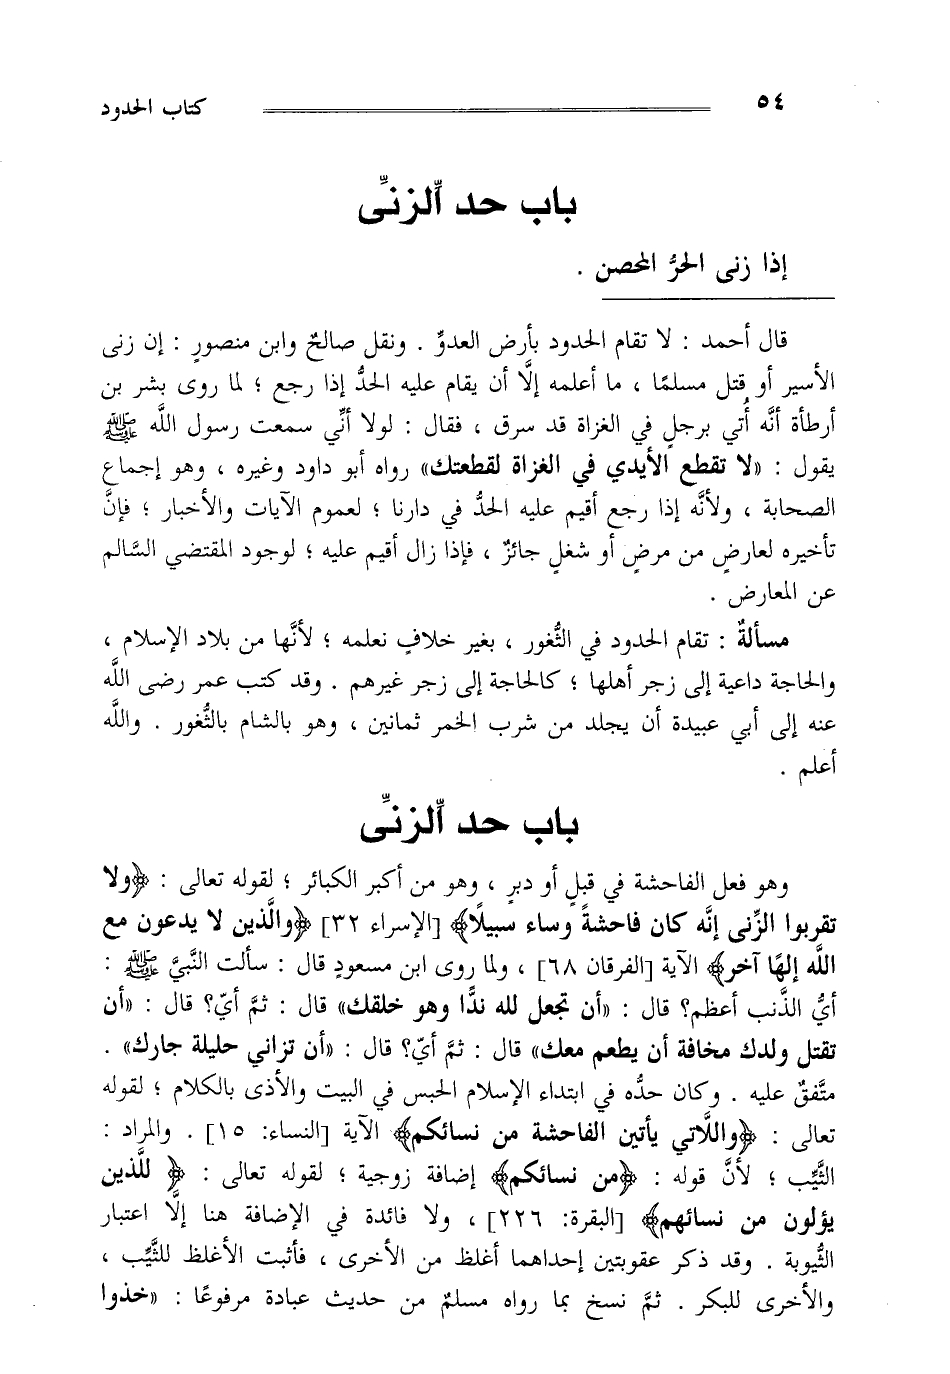 ٥٤
كتاب الحدود
باب حد الزنى
إذا زنى الحرُّ المحصن .
قال أحمد : لا تقام الحدود بأرض العدوِّ . ونقل صالحٌ وابن منصورٍ : إن زنى
الأسير أو قتل مسلمًا ، ما أعلمه إلَّا أن يقام عليه الحدُّ إذا رجع ؛ لما روى بشر بن
أرطأة أنَّه أُتي برجلٍ في الغزاة قد سرق ، فقال : لولا أنِّي سمعت رسول اللَّه ﷺ
يقول : «لا تقطع الأيدي في الغزاة لقطعتك» رواه أبو داود وغيره ، وهو إجماع
الصحابة ، ولأنَّه إذا رجع أقيم عليه الحدُّ في دارنا ؛ لعموم الآيات والأخبار ؛ فإنَّ
تأخيره لعارضٍ من مرضٍ أو شغلٍ جائزٌ ، فإذا زال أقيم عليه ؛ لوجود المقتضي السَّالم
عن المعارض .
مسألةٌ : تقام الحدود في الثُّغور ، بغير خلافٍ نعلمه ؛ لأنَّها من بلاد الإسلام ،
والحاجة داعية إلى زجر أهلها ؛ كالحاجة إلى زجر غيرهم . وقد كتب عمر رضى اللَّه
عنه إلى أبي عبيدة أن يجلد من شرب الخمر ثمانين ، وهو بالشام بالثُّغور . واللَّه
أعلم .
باب حد الزنى
وهو فعل الفاحشة في قبلٍ أو دبرٍ ، وهو من أكبر الكبائر ؛ لقوله تعالى : ﴿ولا
تقربوا الزِّنى إنَّه كان فاحشةً وساء سبيلًا﴾ [الإسراء ٣٢] ﴿والَّذين لا يدعون مع
اللَّه إلهًا آخر﴾ الآية [الفرقان ٦٨] ، ولما روى ابن مسعودٍ قال : سألت النَّبيَّ ﷺ :
أيُّ الذَّنب أعظم؟ قال : «أن تجعل لله ندًّا وهو خلقك» قال : ثمَّ أيّ؟ قال : «أن
تقتل ولدك مخافة أن يطعم معك» قال : ثمَّ أيّ؟ قال : «أن تزاني حليلة جارك» .
متَّفقٌ عليه . وكان حدُّه في ابتداء الإسلام الحبس في البيت والأذى بالكلام ؛ لقوله
تعالى : ﴿واللَّاتي يأتين الفاحشة من نسائكم﴾ الآية [النساء: ١٥] . والمراد :
الثَّيِّب ؛ لأنَّ قوله : ﴿من نسائكم﴾ إضافة زوجية ؛ لقوله تعالى : ﴿ للَّذين
يؤلون من نسائهم﴾ [البقرة: ٢٢٦] ، ولا فائدة في الإضافة هنا إلَّا اعتبار
الثُّيوبة . وقد ذكر عقوبتين إحداهما أغلظ من الأخرى ، فأثبت الأغلظ للثَّيِّب ،
والأخرى للبكر . ثمَّ نسخ بما رواه مسلمٌ من حديث عبادة مرفوعًا : «خذوا